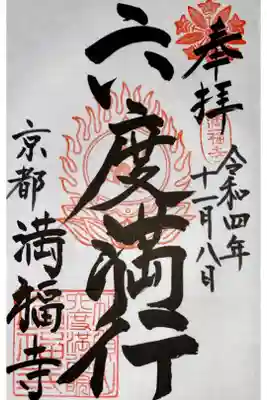 奉拝
令和四年
十一月八日
六度満行
京都
満福寺